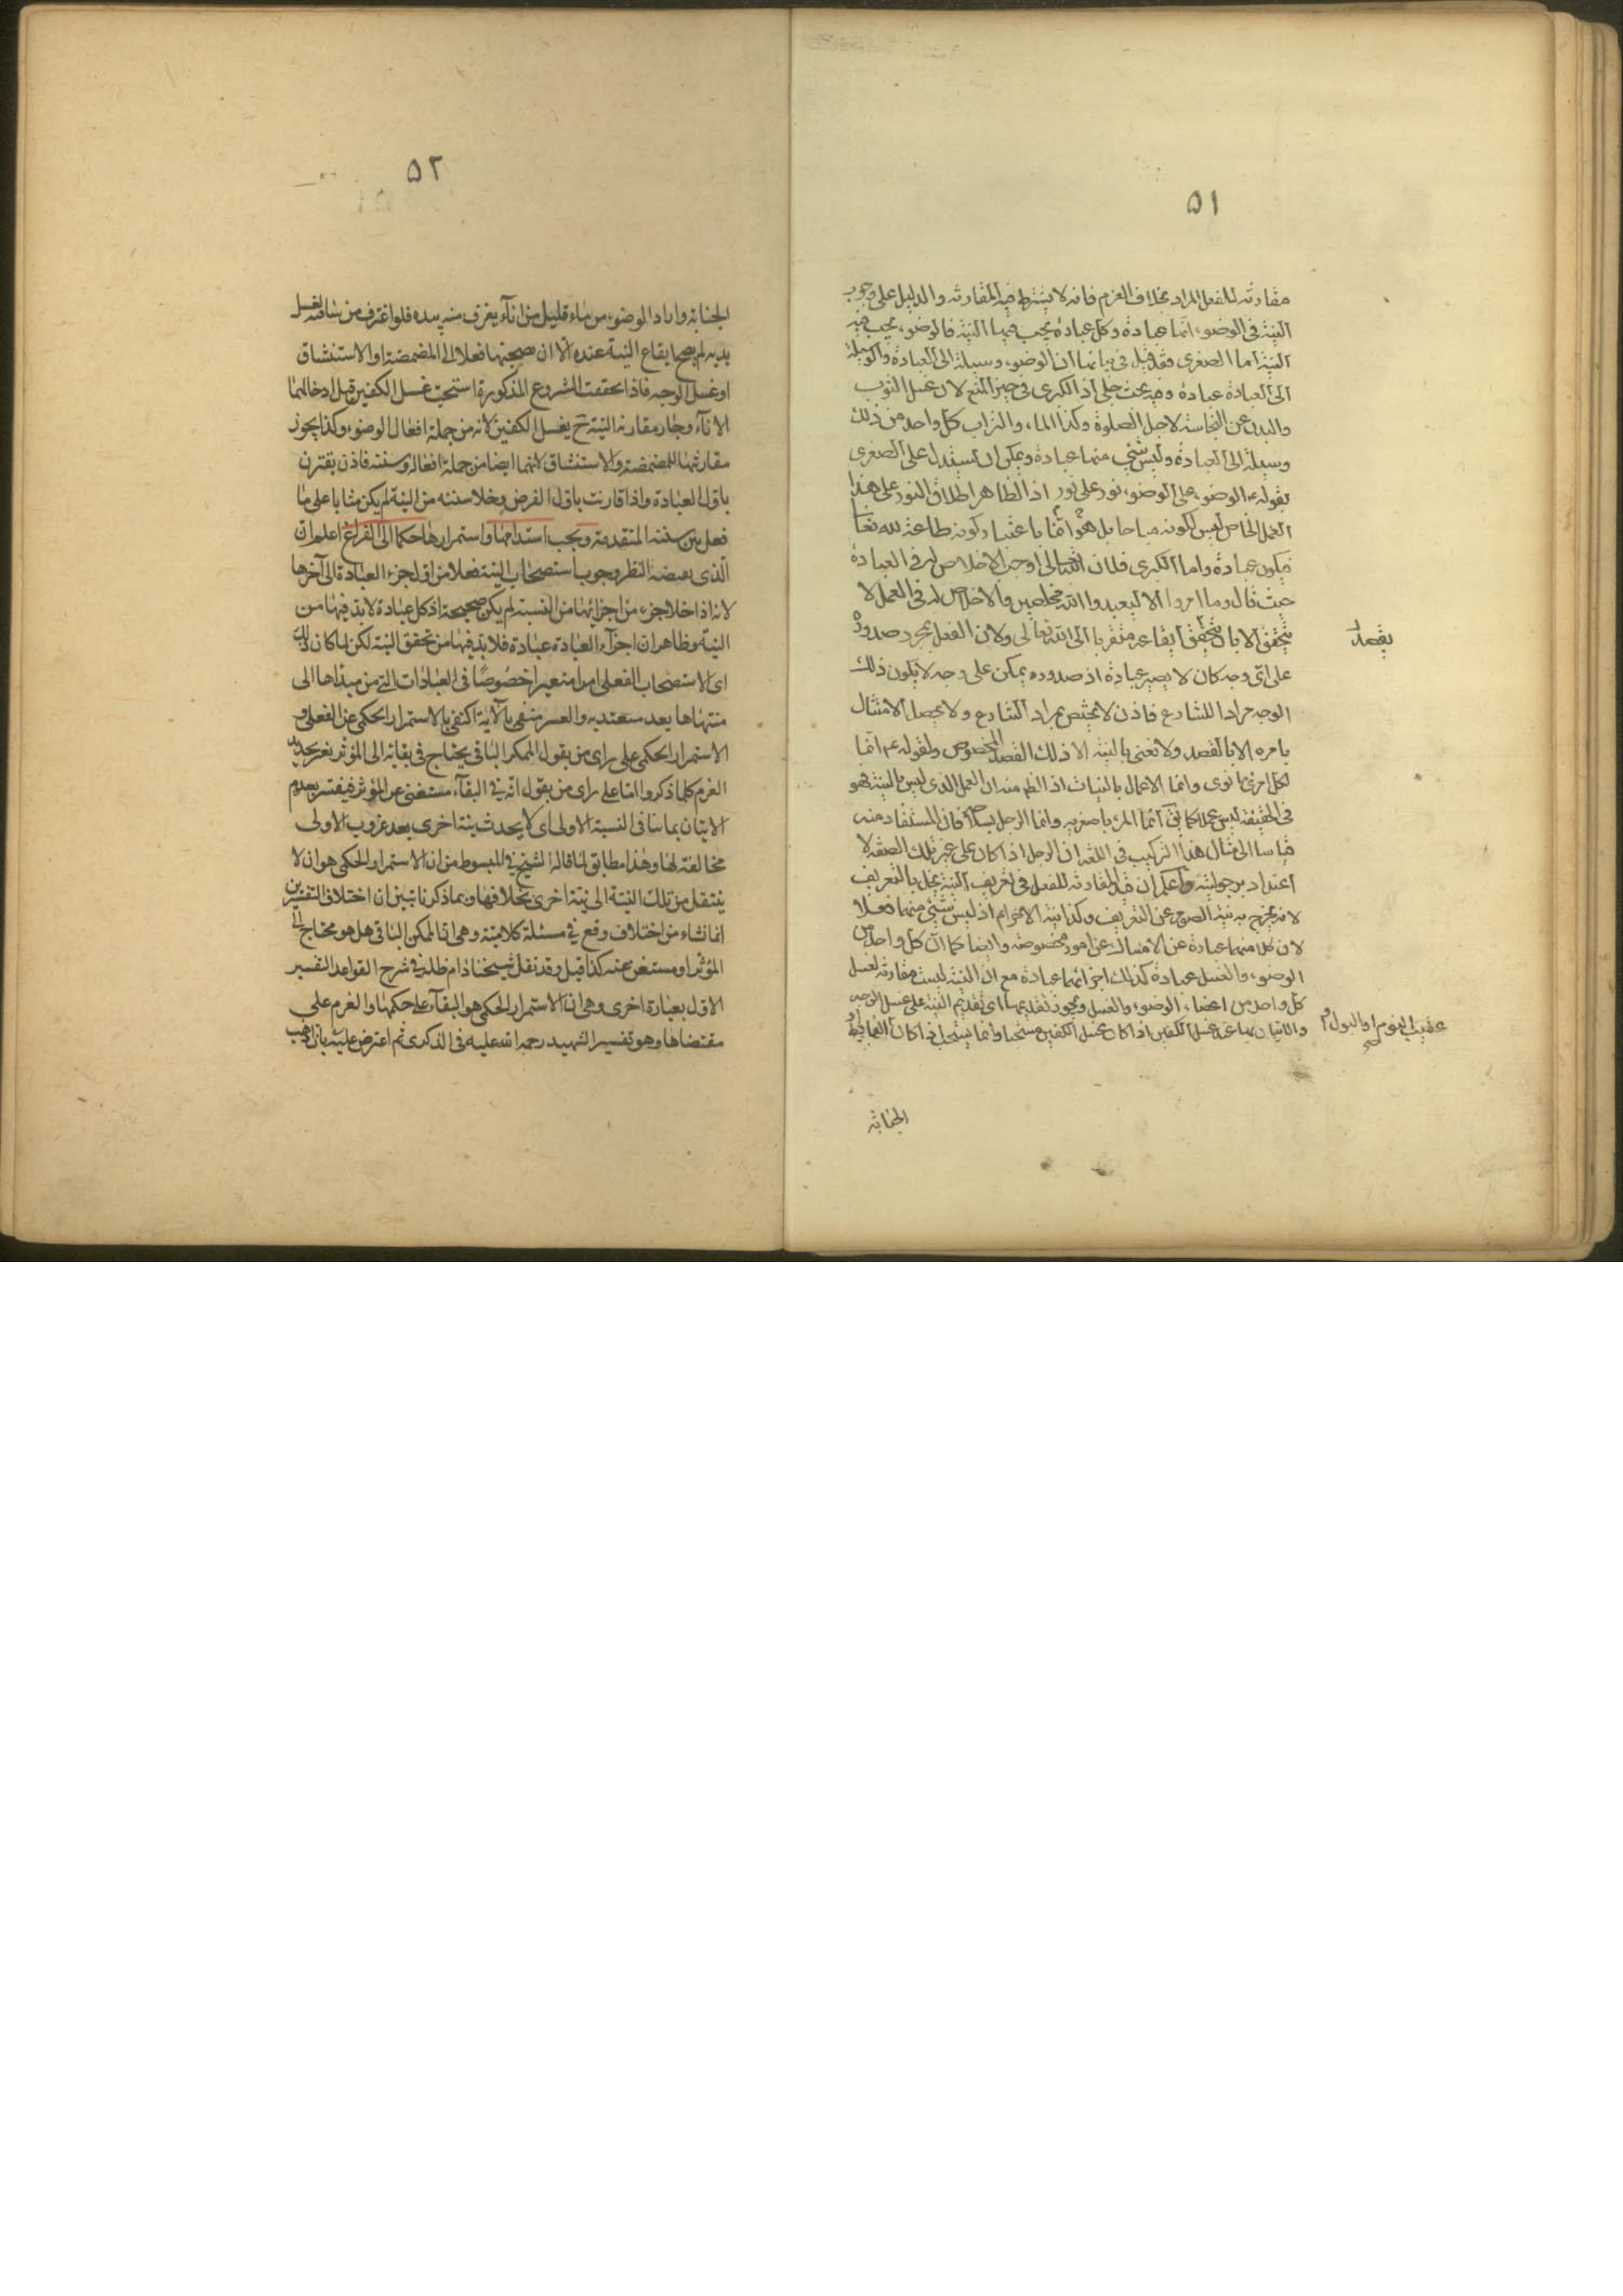 ٥١
مقارنته للفعل المراد بخلاف العزم فانه لا يشترط فيه المقارنة والدليل على وجوب
النية فى الوضوء انما عبادة وكل عبادة يجب فيها النية فالوضوء يجب فيه
النية اما الصغرى فقد قيل فى بيانها ان الوضوء وسيلة الى العبادة والوسيلة
الى العبادة عبادة وفيه بحث جلى اذ الكبرى فى حيز المنع لان غسل الثوب
والبدن عن النجاسة لاجل الصلوة وكذا الماء والتراب كل واحد من ذلك
وسيلة الى العبادة وليس شئ منها عبادة ويمكن ان يستدل على الصغرى
بقوله ع الوضوء على الوضوء نور على نور اذ الظاهر اطلاق النور على هذا
العمل الخاص ليس لكونه مباحا بل هو انما باعتبار كونه طاعة لله تعا
فيكون عبادة واما الكبرى فلان الله تعالى اوجب الاخلاص له فى العبادة
حيث قال وما امروا الا ليعبدوا الله مخلصين والاخلاص له فى العمل لا
يتحقق الا بان يتحقق ايقاعه متقربا الى الله تعالى ولان الفعل بمجرد صدوره
يقصد
على اى وجه كان لا يصير عبادة اذ صدوره يمكن على وجه لا يكون ذلك
الوجه مرادا للشارع فاذن لا يختص بمراد الشارع ولا يحصل الامتثال
بامره الا بالقصد ولا نعنى بالنية الا ذلك القصد المخصوص ولقوله ع م انما
لكل امرئ ما نوى وانما الاعمال بالنيات اذ الظ منه ان العمل الذى ليس بالنية فهو
فى الحقيقة ليس عملا كما يق انما المرء باصغريه وانما الرجل فان المستفاد منه
قياسا الى مثال هذا التركيب فى اللغة ان الرجل اذا كان على غير تلك الصفة لا
اعتداد برجوليته واعلم ان قيد المقارنة للفعل فى تعريف النية يخل بالتعريف
لانه يخرج به نية الصوم عن التعريف وكذا نية الاحرام اذ ليس شئ منهما فعلا
لان كلا منهما عبادة عن الامساك عن امور مخصوصة وايضا كما ان كل واحد من
الوضوء والغسل عبادة كذلك اجزائهما عبادة مع ان النية ليست مقارنة لغسل
كل واحد من اعضاء الوضوء والغسل ويجوز تقديمها اى تقديم النية على غسل الوجه
والاتيان بها عند غسل الكفين اذا كان غسل الكفين مستحبا وانما يستحب اذا كان
عقيب النوم او البول او
الجنابة
٥٢
الجنابة واراد الوضوء من ماء قليل من اناء يغرف منه بيده فلو اغترف من لغسل
يديه لم يصح ايقاع النية عنده الا ان صحبتها فعلا الى المضمضة او الاستنشاق
او غسل الوجه فاذا تحققت المشروع المذكورة استحبت غسل الكفين قبل ادخالهما
الاناء وجار مقارنة النية ح يغسل الكفين لانه من جملة افعال الوضوء وكذا يجوز
مقارنتها للمضمضة والاستنشاق لانهما ايضا من جملة افعاله وسننه فاذن يقترن
باول العبادة واذا قارنت باول الفرض وخلا سننه من النية لم يكن مثابا على ما
فعل من سننه المتقدمة ويجب استدامتها واستمرارها حكما الى الفراغ اعلم ان
الذى يعرضه النظر وجوب استصحاب النية فعلا من اول جزء العبادة الى آخرها
لانه اذا خلا جزء من اجزائها من النسبة لم يكن صحيحة اذ كل عبادة لا بد فيها من
النية وظاهر ان اجزاء العبادة عبادة فلا بد فيها من تحقق النية لكن لما كان ذلك
اى الاستصحاب الفعلى امرا متعسرا خصوصا فى العبادات التى من مبداها الى
منتهاها بعد معتد به والعسر منفى بالآية اكتفى بالاستمرار الحكمى عن الفعلى و
الاستمرار الحكمى على راى من يقول الممكن الباقى يحتاج فى بقائه الى المؤثر يفسر بتجديد
العزم كلما ذكر واما على راى من يقول انه فى البقاء مستغنى عن المؤثر فيفسر بعدم
الاتيان بما ينافى النسبة الاولى اى لا يحدث نية اخرى بعد عزوب الاولى
مخالفة لها وهذا مطابق لما قاله الشيخ فى المبسوط من ان الاستمرار الحكمى هو ان لا
ينتقل من تلك النية الى نية اخرى بخلافها وبما ذكرنا تبين ان اختلاف التفسيرين
انما نشاء من اختلاف وقع فى مسئلة كلامية وهى ان الممكن الباقى هل هو محتاج الى
المؤثر او مستغن عنه كذا قيل وقد نقل شيخنا دام ظله فى شرح القواعد التفسير
الاول بعبارة اخرى وهى ان الاستمرار الحكمى هو البقاء على حكمها والعزم على
مقتضاها وهو تفسير الشهيد رحمة الله عليه فى الذكرى ثم اعترض عليه بان